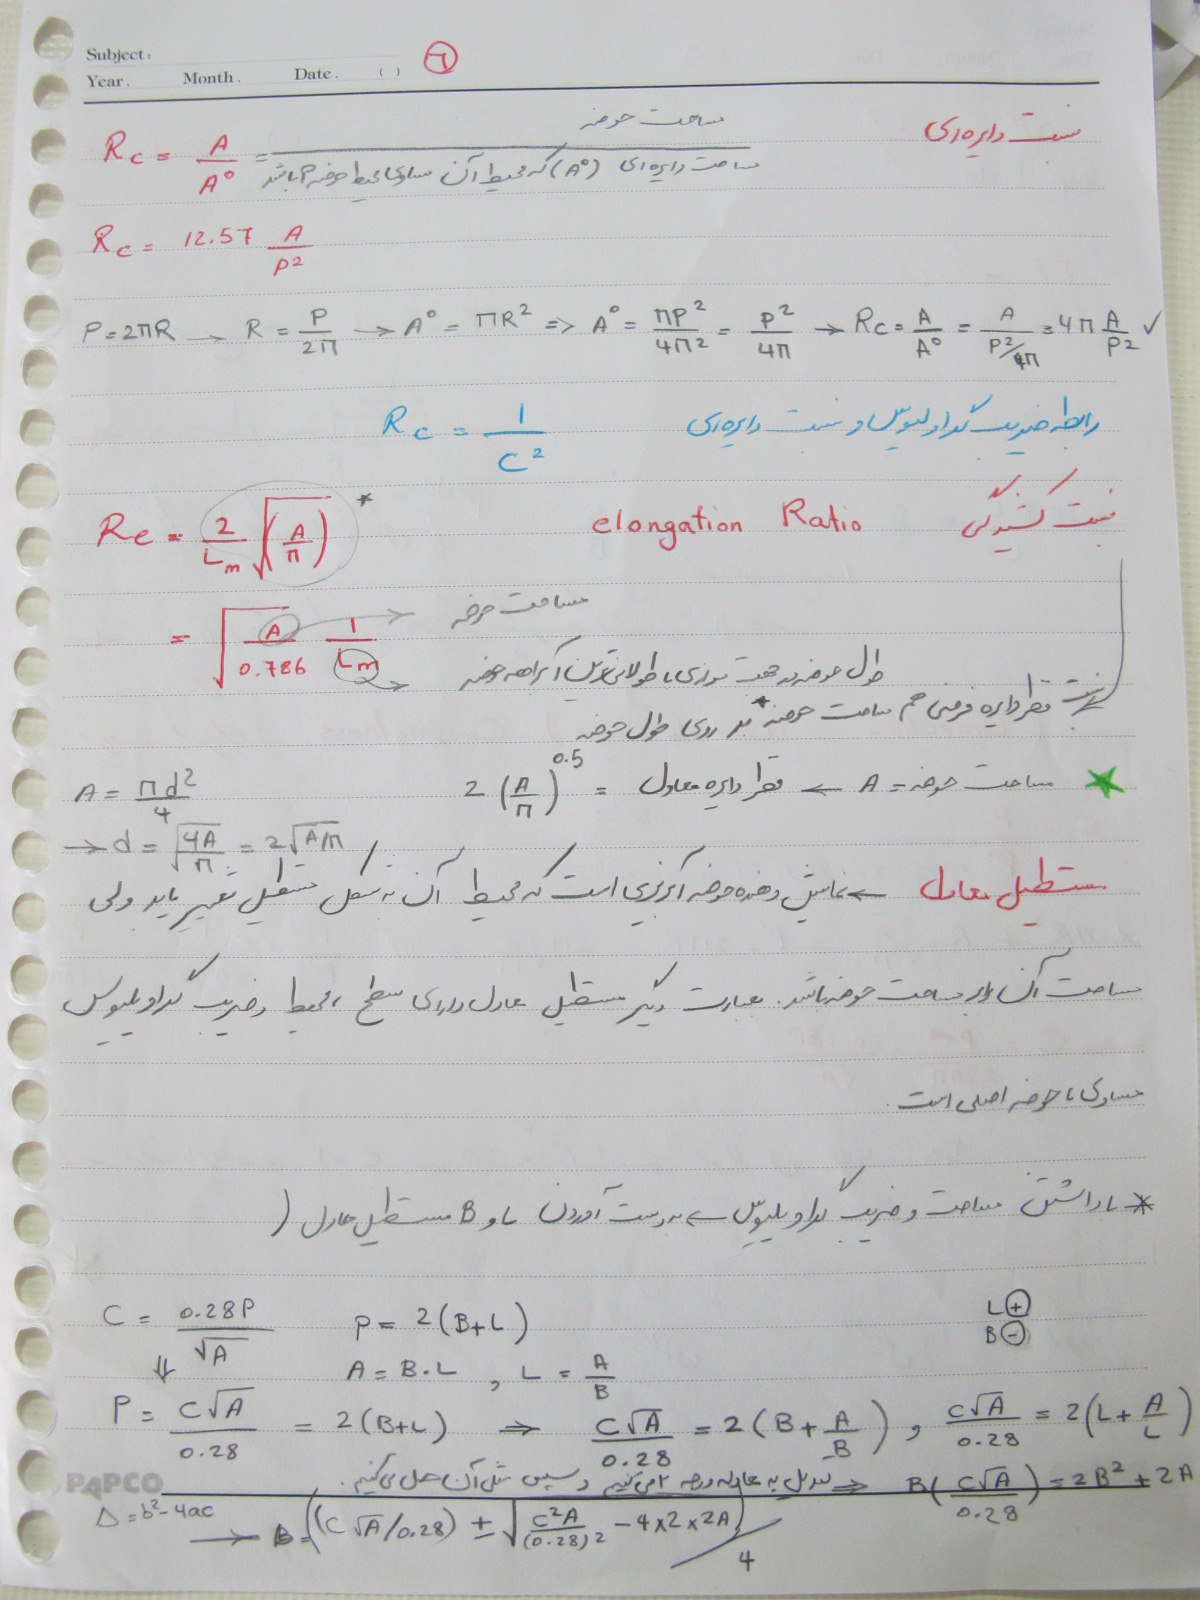 Subject:
Year. Month. Date. ( ) ٦
نسبت دایره‌ای
Rc = A / A° = مساحت حوضه / مساحت دایره‌ای (A°) که محیط آن مساوی محیط حوضه P باشد
Rc = 12.57 A / P²
P=2πR → R = P/2π → A° = πR² => A° = πP²/4π² = P²/4π → Rc = A/A° = A/(P²/4π) = 4π A/P² ✓
رابطه ضریب گراولیوس و نسبت دایره‌ای Rc = 1/C²
نسبت کشیدگی elongation Ratio Re = 2/Lm √(A/π) *
= √(A/0.786) 1/Lm
مساحت حوضه
طول حوضه در جهت موازی با طولانی‌ترین آبراهه حوضه
نسبت قطر دایره فرضی هم مساحت حوضه* بر روی طول حوضه
★ مساحت حوضه = A ← قطر دایره معادل = 2(A/π)^0.5
A = πd²/4
→ d = √(4A/π) = 2√(A/π)
مستطیل معادل ← نمایش دهنده حوضه آبریزی است که محیط آن به شکل مستطیل تغییر یابد ولی
مساحت آن برابر مساحت حوضه باشد. بعبارت دیگر مستطیل معادل دارای سطح، محیط و ضریب گراویلیوس
مساوی با حوضه اصلی است.
* با داشتن مساحت و ضریب گراویلیوس ← بدست آوردن L و B مستطیل معادل (
C = 0.28P/√A P = 2(B+L) L ⊕
B ⊖
⇓ A = B.L , L = A/B
P = C√A/0.28 = 2(B+L) ⇒ C√A/0.28 = 2(B + A/B) , C√A/0.28 = 2(L + A/L)
B(C√A/0.28) = 2B² + 2A ⇒ تبدیل به معادله درجه ۲ می‌کنیم و سپس مثل آن حل می‌کنیم.
PAPCO
Δ = b²-4ac
→ B = ((C√A/0.28) ± √(C²A/(0.28)² - 4×2×2A)) / 4